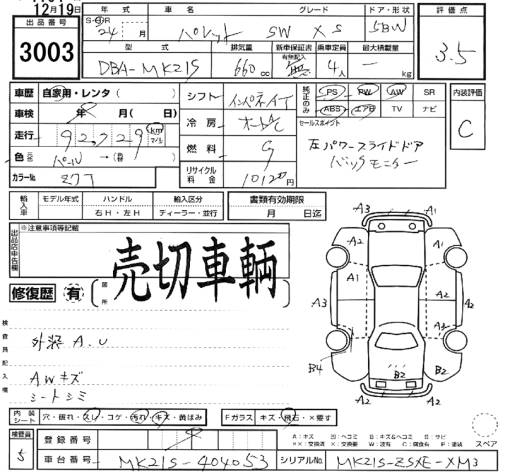 12月19日
出品番号 3003
年式 車名 グレード ドア・形状 評価点
S・H・R 24年 月 パレット SW XS 5BW 3.5
型式 排気量 新車保証書 乗車定員 最大積載量
有無記入
DBA-MK21S 660cc 無 4人 kg
車歴 自家用・レンタ( )
車検 年 月(日)
走行 92,729 km マイル
色 パール
カラーNo. Z7T
シフト インパネAT
冷房 オートAC
燃料 G
リサイクル料金 10120円
純正のみ PS PW AW SR
ABS エアB TV ナビ
内装評価 C
セールスポイント
左パワースライドドア
バックモニター
輸入車 モデル年式 ハンドル 輸入区分 書類有効期限
右H・左H ディーラー・並行 月 日迄
出品店申告欄 ※注意事項等記載
売切車輌
修復歴 有 箇所
検査員記入欄
外装 A.U
AWキズ
シートシミ
A3 A1
A2 A1 A2
A3 A1 A2 A2
A3 A2
B4 B2 B2
A2 A2
内装シート 穴・破れ・スレ・コゲ・汚れ・キズ・黄ばみ Fガラス キズ・飛石・×要す
A:キズ B:キズ&ヘコミ
スペア
検査員 5
登録番号
車台番号 MK21S-404053 シリアルNo. MK21S-ZSXE-XM3